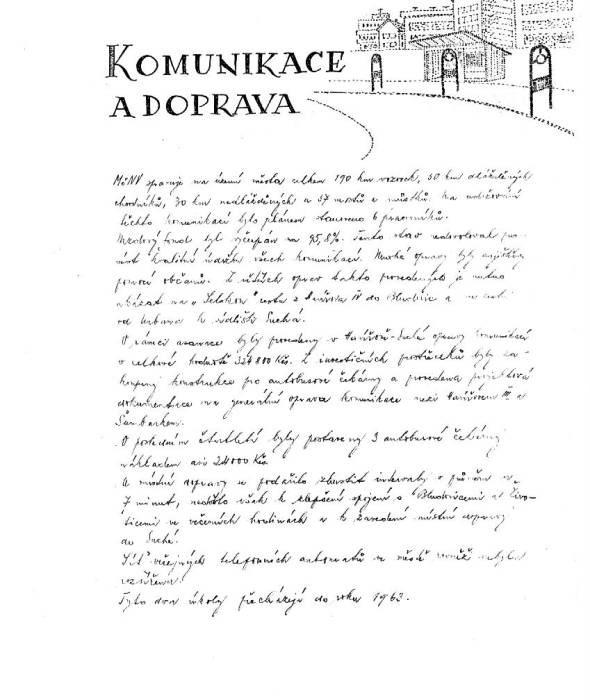 KOMUNIKACE
A DOPRAVA
MěNV spravuje na území města celkem 190 km vozovek, 50 km dlážděných
chodníků, 30 km nedlážděných a 57 mostů a můstků. Na udržování
těchto komunikací bylo plánem stanoveno 6 pracovníků.
Mzdový fond byl vyčerpán na 95,8%. Tento stav nedovoloval
kvalitní údržbu všech komunikací. Mnohé opravy byly zajištěny
pomocí občanů. Z větších oprav takto provedených je nutno
ukázat na " " cestu z Havířova IV do Bludovic a
od k sídlišti Suchá.
V rámci asanace byly provedeny v Havířově-Suché opravy komunikací
v celkové hodnotě 324 800 Kčs. Z investičních prostředků byly za-
koupeny konstrukce pro autobusové čekárny a provedena projektová
dokumentace na generální opravu komunikace mezi Havířovem III a
Šumbarkem.
V posledním čtvrtletí byly postaveny 3 autobusové čekárny
nákladem asi 24 000 Kčs.
U místní dopravy se podařilo zkrátit intervaly v průměru na
7 minut, nedošlo však k zlepšení spojení s Bludovicemi a Živo-
ticemi ve večerních hodinách a k zavedení místní dopravy
do Suché.
Síť veřejných telefonních automatů ve městě rovněž nebyla
rozšířena.
Tyto dva úkoly přecházejí do roku 1963.